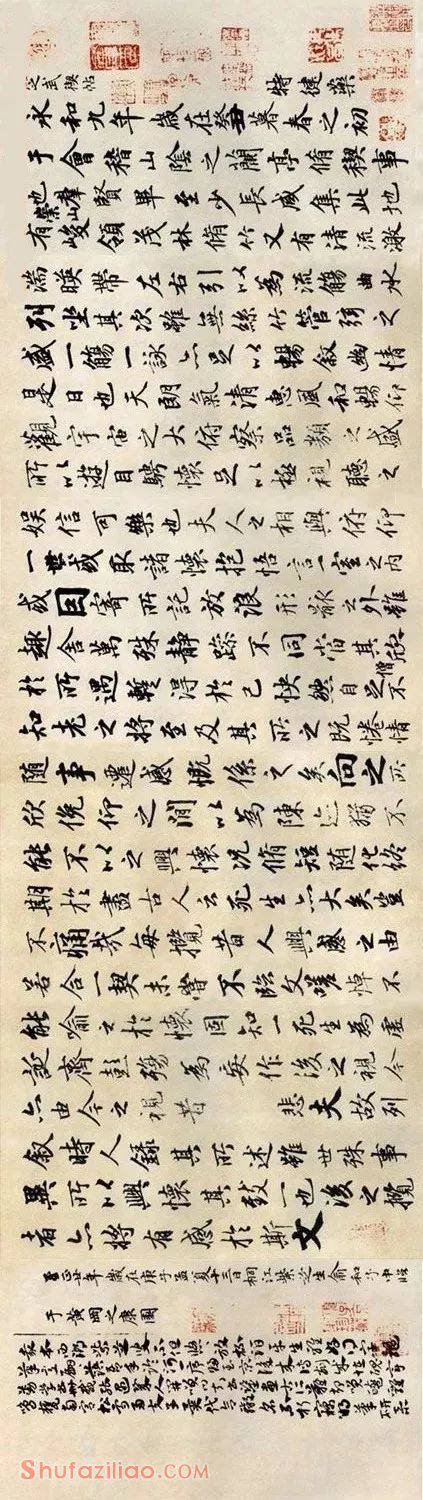 定武禊帖 特健藥
永和九年歲在癸丑暮春之初
于會稽山陰之蘭亭脩禊事
也羣賢畢至少長咸集此地
有崇山峻領茂林脩竹又有清流激
湍暎帶左右引以為流觴曲水
列坐其次雖無絲竹管弦之
盛一觴一詠亦足以暢敘幽情
是日也天朗氣清惠風和暢仰
觀宇宙之大俯察品類之盛
所以遊目騁懷足以極視聽之
娛信可樂也夫人之相與俯仰
一世或取諸懷抱悟言一室之內
或因寄所託放浪形骸之外雖
趣舍萬殊靜躁不同當其欣
於所遇蹔得於己怏然自足不
僧
知老之將至及其所之既惓情
隨事遷感慨係之矣向之所
欣俛仰之間以為陳迹猶不
能不以之興懷況脩短隨化終
期於盡古人云死生亦大矣豈
不痛哉每攬昔人興感之由
若合一契未嘗不臨文嗟悼不
能喻之於懷固知一死生為虛
誕齊彭殤為妄作後之視今
亦由今之視昔 悲夫故列
敘時人錄其所述雖世殊事
異所以興懷其致一也後之攬
者亦將有感於斯文
至正廿年歲在庚子孟夏十三日桐江紫芝生俞和子中臨
于黃岡之康園
Shufaziliao.com